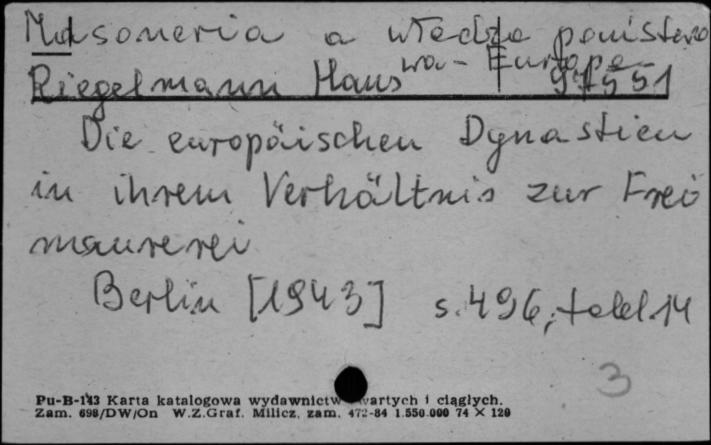 Masoneria a władza państwo
wa - Europa
Riegelmann Hans 97551
Die europäischen Dynastien
in ihrem Verhältnis zur Frei
maurerei
Berlin [1943] s. 496, tabl. 14
3
Pu-B-143 Karta katalogowa wydawnictw zwartych i ciągłych.
Zam. 698/DW/On W.Z.Graf. Milicz, zam. 472-84 1.550.000 74 × 120